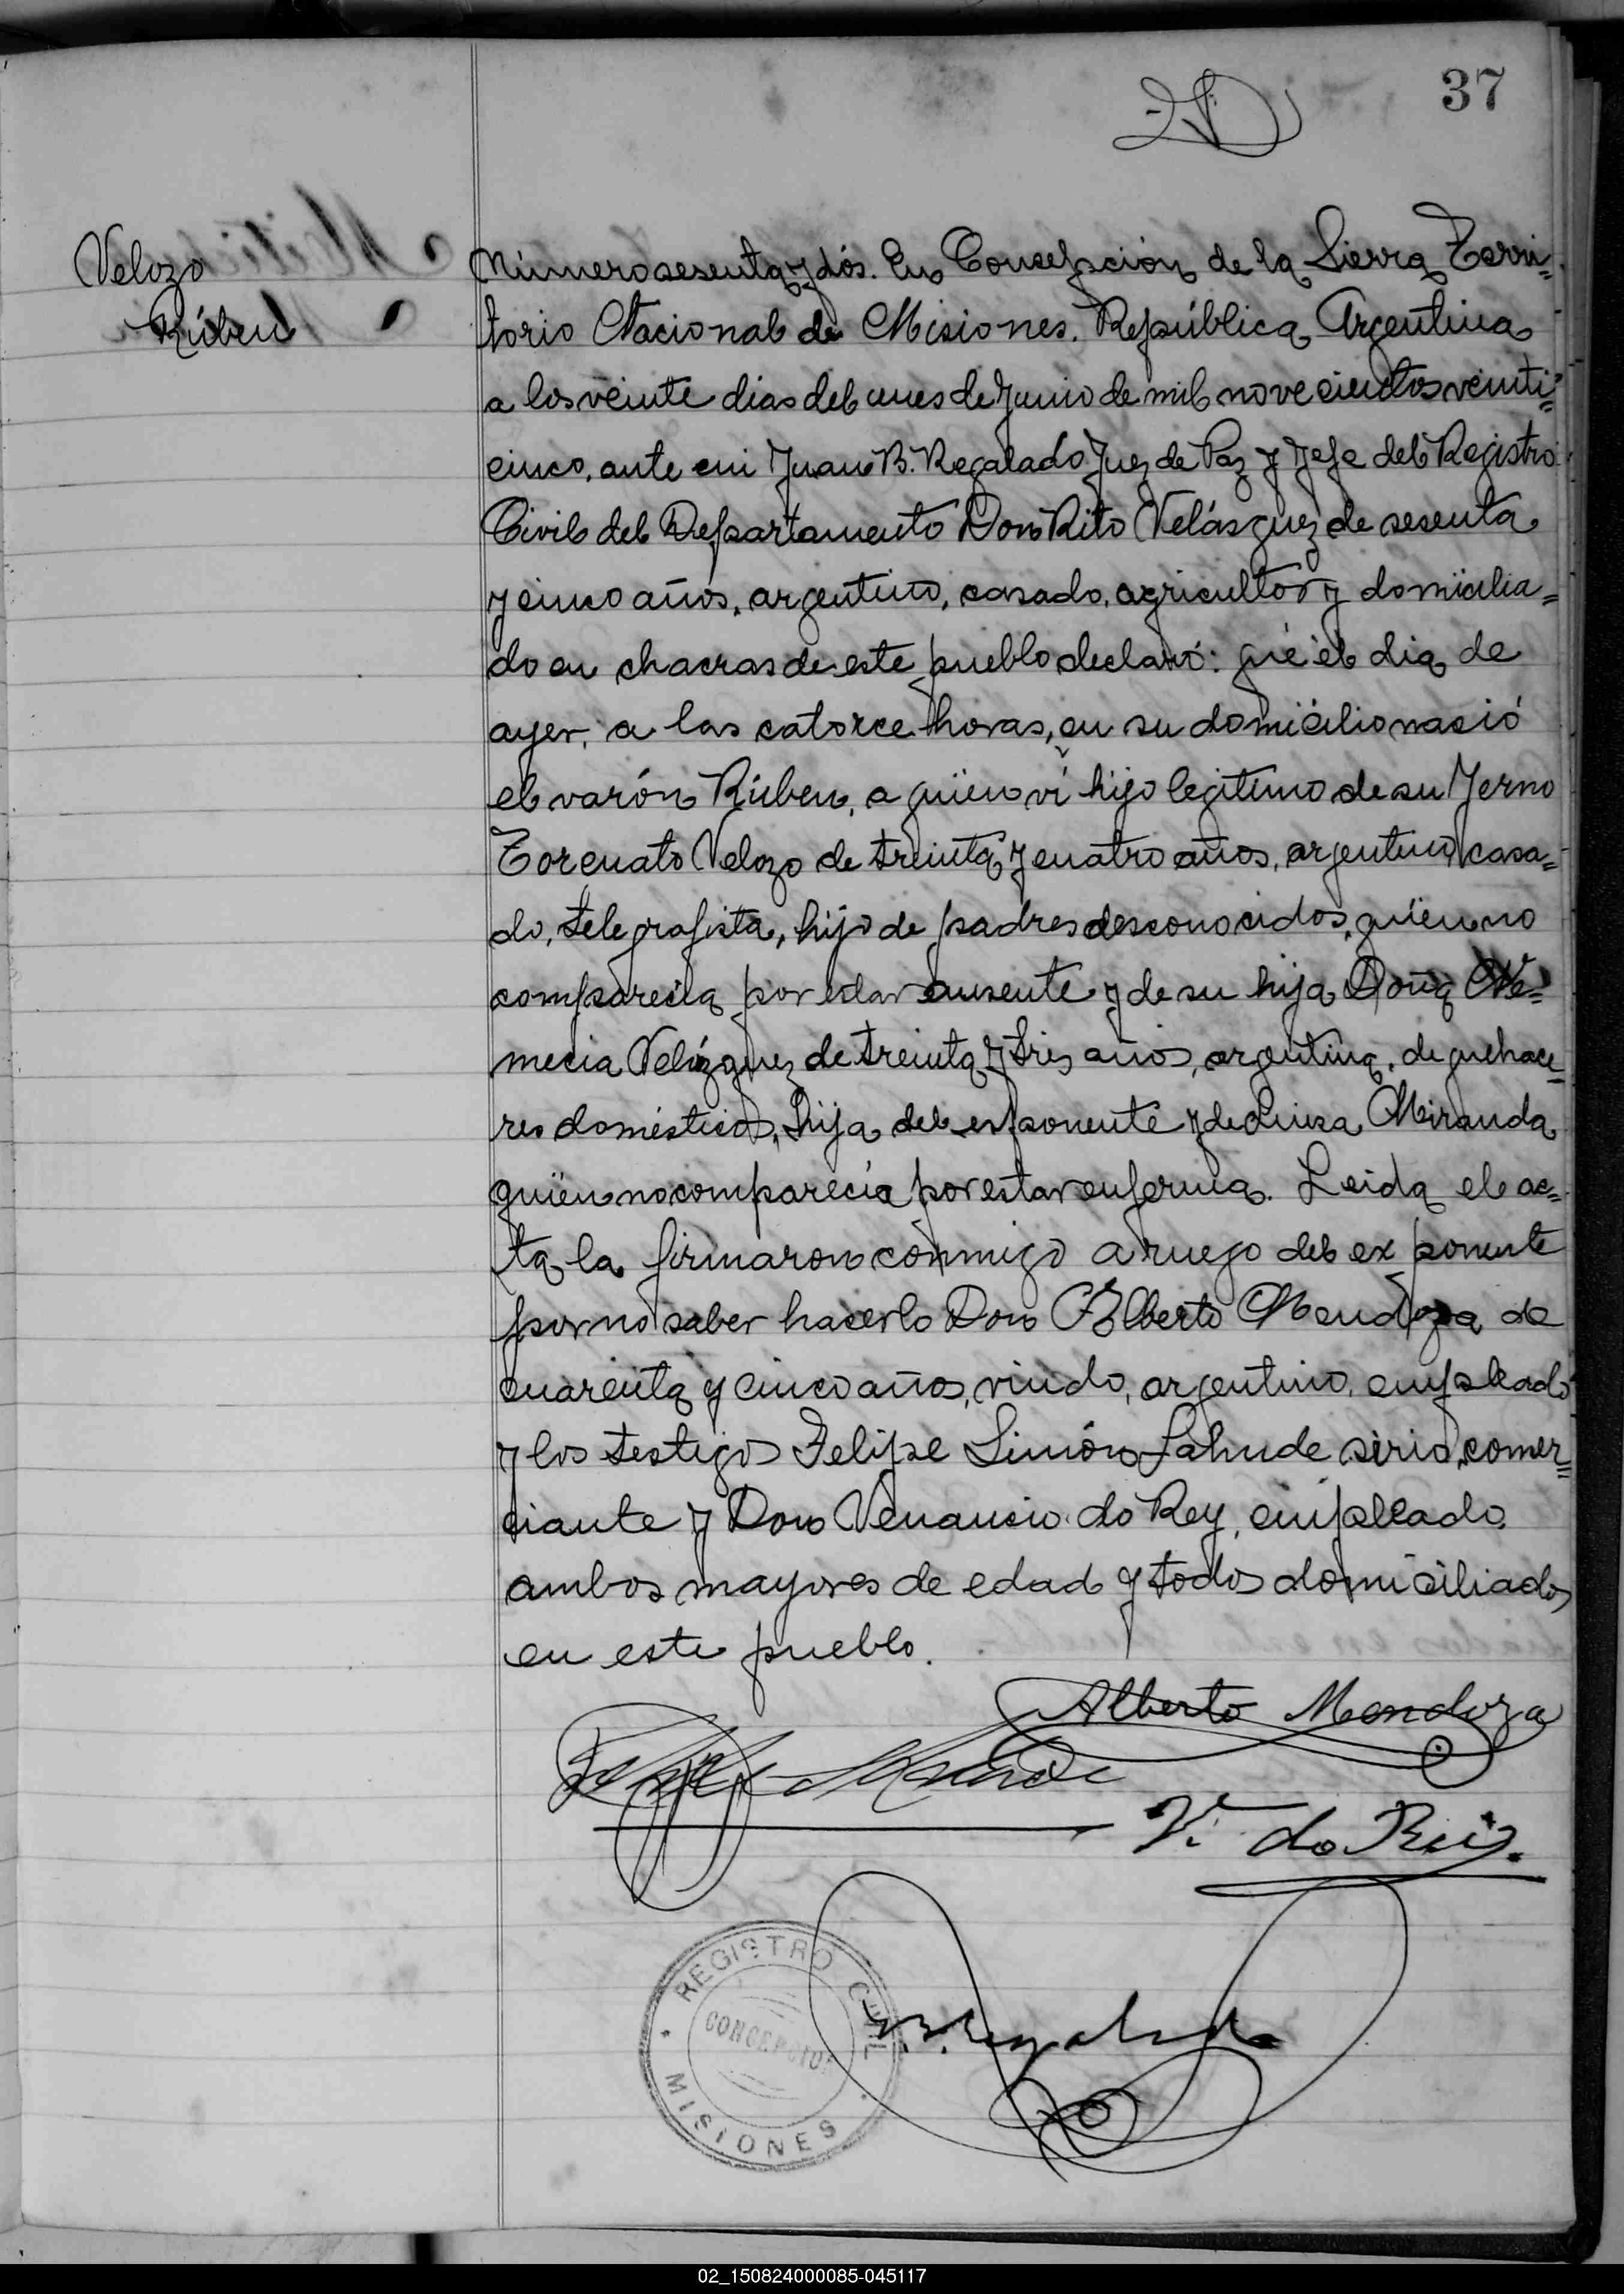 37
Velozo
Rúben
Número sesenta y dós. En Concepción de la Sierra Terri=
torio Nacional de Misiones. República Argentina
a los veinte dias del mes de Junio de mil novecientos veinti=
cinco, ante mi Juan B. Regalado Juez de Paz y Jefe del Registro
Civil del Departamento Don Rito Velásquez de sesenta
y cinco años, argentino, casado, agricultor y domicilia=
do en chacras de este pueblo declaró: qué el dia de
ayer, a las catorce horas, en su domicilio nació
el varón Rúben, a quien vi hijo legitimo de su Yerno
Torcuato Velozo de treinta y cuatro años, argentino, casa=
do, telegrafista, hijo de padres desconocidos, quien no
comparecia por estar ausente y de su hija Doña Ne=
mecia Velázquez de treinta y tres años, argentina, de quehace=
res domésticos, hija del exponente y de Luisa Miranda
quien no comparecía por estar enferma. Leida el ac=
ta la firmaron conmigo a ruego del exponente
por no saber hacerlo Don Alberto Mendoza de
cuarenta y cinco años, viudo, argentino, empleado
y los testigos Felipe Simón Lahude sirio, comer=
ciante y Don Venancio do Rey, empleado,
ambos mayores de edad y todos domiciliados
en este pueblo.
Alberto Mendoza
V. do Rey.
B. Regalado
REGISTRO CIVIL
CONCEPCION
MISIONES
02_150824000085-045117